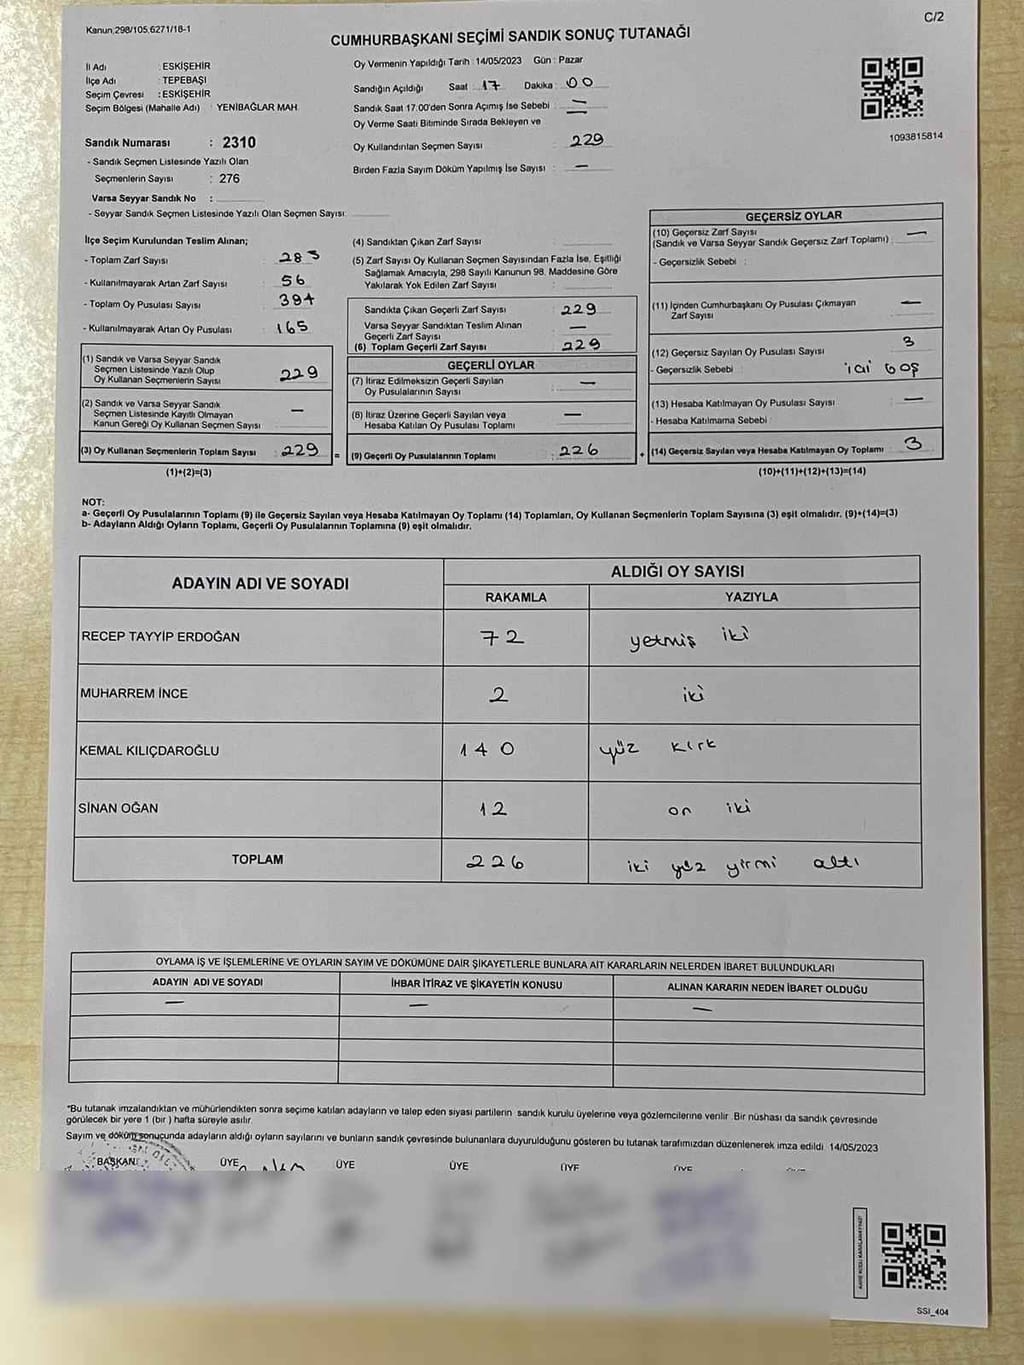 Kanun;298/105,6271/18-1
C/2
CUMHURBAŞKANI SEÇİMİ SANDIK SONUÇ TUTANAĞI
İl Adı : ESKİŞEHİR
İlçe Adı : TEPEBAŞI
Seçim Çevresi : ESKİŞEHİR
Seçim Bölgesi (Mahalle Adı) : YENİBAĞLAR MAH.
Oy Vermenin Yapıldığı Tarih : 14/05/2023 Gün : Pazar
Sandığın Açıldığı Saat 17 Dakika : 00
Sandık Saat 17:00'den Sonra Açımış İse Sebebi : —
Oy Verme Saati Bitiminde Sırada Bekleyen ve
Oy Kullandırılan Seçmen Sayısı : 229
Birden Fazla Sayım Döküm Yapılmış İse Sayısı : —
1093815814
Sandık Numarası : 2310
- Sandık Seçmen Listesinde Yazılı Olan
Seçmenlerin Sayısı : 276
Varsa Seyyar Sandık No :
- Seyyar Sandık Seçmen Listesinde Yazılı Olan Seçmen Sayısı:
İlçe Seçim Kurulundan Teslim Alınan;
- Toplam Zarf Sayısı : 285
- Kullanılmayarak Artan Zarf Sayısı : 56
- Toplam Oy Pusulası Sayısı : 394
- Kullanılmayarak Artan Oy Pusulası : 165
(1) Sandık ve Varsa Seyyar Sandık
Seçmen Listesinde Yazılı Olup
Oy Kullanan Seçmenlerin Sayısı 229
(2) Sandık ve Varsa Seyyar Sandık
Seçmen Listesinde Kayıtlı Olmayan
Kanun Gereği Oy Kullanan Seçmen Sayısı —
(3) Oy Kullanan Seçmenlerin Toplam Sayısı 229
(1)+(2)=(3)
(4) Sandıktan Çıkan Zarf Sayısı
(5) Zarf Sayısı Oy Kullanan Seçmen Sayısından Fazla İse, Eşitliği
Sağlamak Amacıyla, 298 Sayılı Kanunun 98. Maddesine Göre
Yakılarak Yok Edilen Zarf Sayısı :
Sandıkta Çıkan Geçerli Zarf Sayısı 229
Varsa Seyyar Sandıktan Teslim Alınan
Geçerli Zarf Sayısı —
(6) Toplam Geçerli Zarf Sayısı 229
GEÇERLİ OYLAR
(7) İtiraz Edilmeksizin Geçerli Sayılan
Oy Pusulalarının Sayısı —
(8) İtiraz Üzerine Geçerli Sayılan veya
Hesaba Katılan Oy Pusulası Toplamı —
= (9) Geçerli Oy Pusulalarının Toplamı 226
GEÇERSİZ OYLAR
(10) Geçersiz Zarf Sayısı
(Sandık ve Varsa Seyyar Sandık Geçersiz Zarf Toplamı) —
- Geçersizlik Sebebi :
(11) İçinden Cumhurbaşkanı Oy Pusulası Çıkmayan
Zarf Sayısı —
(12) Geçersiz Sayılan Oy Pusulası Sayısı 3
- Geçersizlik Sebebi : içi boş
(13) Hesaba Katılmayan Oy Pusulası Sayısı —
- Hesaba Katılmama Sebebi
+ (14) Geçersiz Sayılan veya Hesaba Katılmayan Oy Toplamı 3
(10)+(11)+(12)+(13)=(14)
NOT:
a- Geçerli Oy Pusulalarının Toplamı (9) ile Geçersiz Sayılan veya Hesaba Katılmayan Oy Toplamı (14) Toplamları, Oy Kullanan Seçmenlerin Toplam Sayısına (3) eşit olmalıdır. (9)+(14)=(3)
b- Adayların Aldığı Oyların Toplamı, Geçerli Oy Pusulalarının Toplamına (9) eşit olmalıdır.
ADAYIN ADI VE SOYADI
ALDIĞI OY SAYISI
RAKAMLA YAZIYLA
RECEP TAYYİP ERDOĞAN 72 yetmiş iki
MUHARREM İNCE 2 iki
KEMAL KILIÇDAROĞLU 140 yüz kırk
SİNAN OĞAN 12 on iki
TOPLAM 226 iki yüz yirmi altı
OYLAMA İŞ VE İŞLEMLERİNE VE OYLARIN SAYIM VE DÖKÜMÜNE DAİR ŞİKAYETLERLE BUNLARA AİT KARARLARIN NELERDEN İBARET BULUNDUKLARI
ADAYIN ADI VE SOYADI İHBAR İTİRAZ VE ŞİKAYETİN KONUSU ALINAN KARARIN NEDEN İBARET OLDUĞU
— — —
"Bu tutanak imzalandıktan ve mühürlendikten sonra seçime katılan adayların ve talep eden siyasi partilerin sandık kurulu üyelerine veya gözlemcilerine verilir. Bir nüshası da sandık çevresinde
görülecek bir yere 1 (bir ) hafta süreyle asılır.
Sayım ve döküm sonuçunda adayların aldığı oyların sayılarını ve bunların sandık çevresinde bulunanlara duyurulduğunu gösteren bu tutanak tarafımızdan düzenlenerek imza edildi 14/05/2023
BAŞKAN ÜYE ÜYE ÜYE ÜYE ÜYE
SSI_404